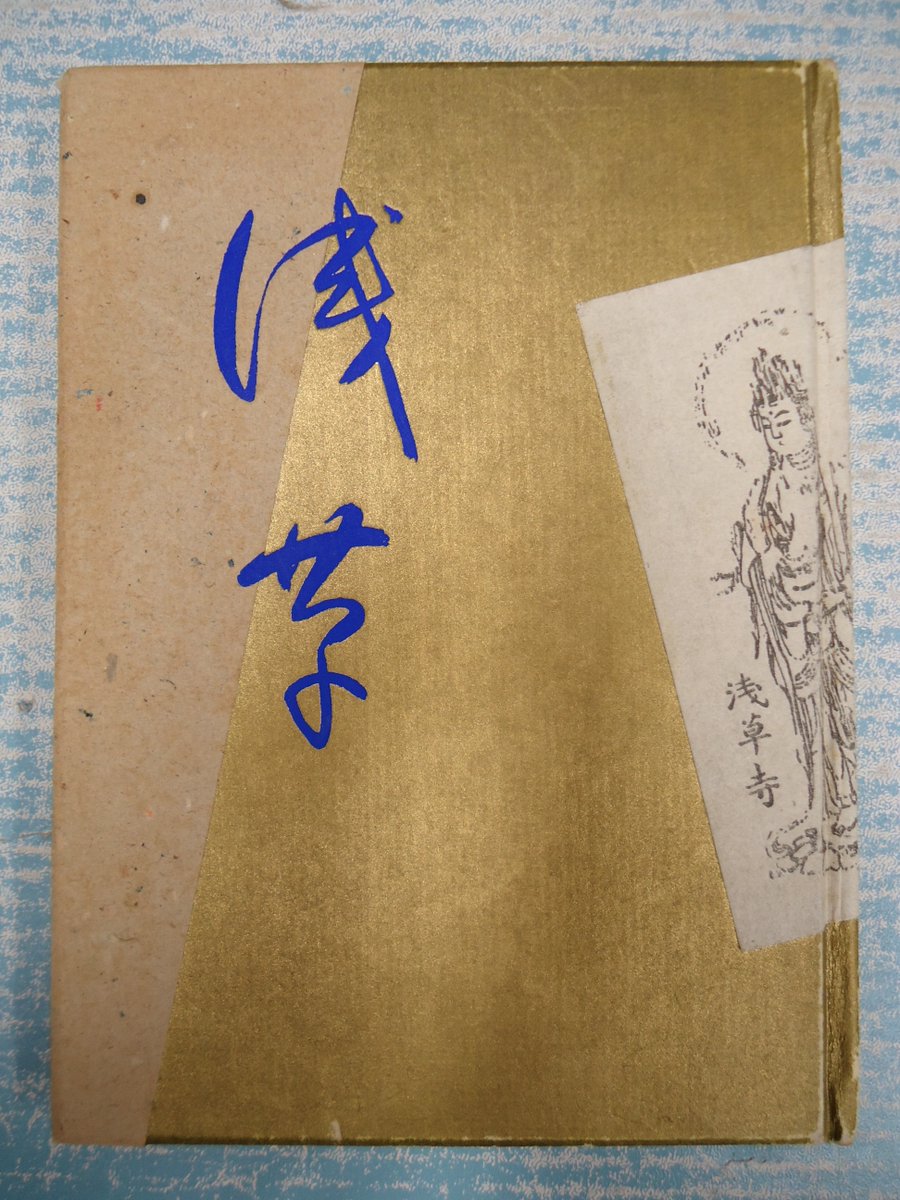 浅草
浅草寺